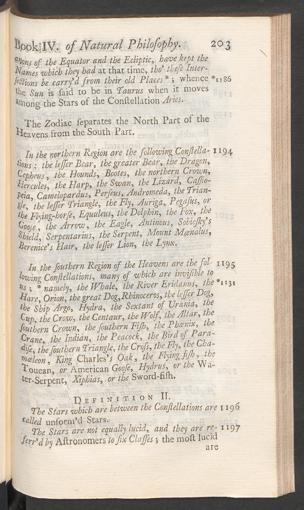 Book IV. of Natural Philosophy. 203
of the Equator and the Ecliptic, have kept the
Names which they had at that time, tho' these Inter-
sections be carry'd from their old Places *; whence *1186
the Sun is said to be in Taurus when it moves
among the Stars of the Constellation Aries.
The Zodiac separates the North Part of the
Heavens from the South Part.
In the northern Region are the following Constella- 1194
tions; the lesser Bear, the greater Bear, the Dragon,
Cepheus, the Hounds, Bootes, the northern Crown,
Hercules, the Harp, the Swan, the Lizard, Cassio-
peia, Camelopardus, Perseus, Andromeda, the Trian-
gle, the lesser Triangle, the Fly, Auriga, Pegasus, or
the Flying-horse, Equuleus, the Dolphin, the Fox, the
Goose, the Arrow, the Eagle, Antinous, Sobiesky's
Shield, Serpentarius, the Serpent, Mount Mænalus,
Berenice's Hair, the lesser Lion, the Lynx.
In the southern Region of the Heavens are the fol- 1195
lowing Constellations, many of which are invisible to
us; * namely, the Whale, the River Eridanus, the *1131
Hare, Orion, the great Dog, Rhinoceros, the lesser Dog,
the Ship Argo, Hydra, the Sextant of Urania, the
Cup, the Crow, the Centaur, the Wolf, the Altar, the
southern Crown, the southern Fish, the Phœnix, the
Crane, the Indian, the Peacock, the Bird of Para-
dise, the southern Triangle, the Cross, the Fly, the Cha-
mæleon, King Charles's Oak, the Flying fish, the
Toucan, or American Goose, Hydrus, or the Wa-
ter-Serpent, Xiphias, or the Sword-fish.
DEFINITION II.
The Stars which are between the Constellations are 1196
called unform'd Stars.
The Stars are not equally lucid, and they are re- 1197
ferr'd by Astronomers to six Classes; the most lucid
are